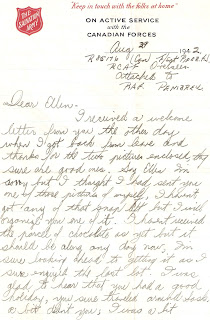 "Keep in touch with the folks at home"
THE SALVATION ARMY
ON ACTIVE SERVICE
WITH THE
CANADIAN FORCES
Aug 29 1942
R.C.A.F. Overseas
Attached to
R.A.F.
Dear Ellen—
I received a welcome
letter from you the other day
when I got back from leave and
thanks for the two pictures enclosed, they
sure are good ones. Say Ellen I'm
sorry but I thought I had sent you
one of those pictures of myself, I haven't
got any of that but I will
organize you one of it. I haven't received
the parcel of chocolate as yet but it
should be along any day now. I'm
sure looking ahead to getting it as I
sure enjoyed the last lot. I was
glad to hear that you had a good
holiday, you sure traveled around
a lot didn't you, I was a bit